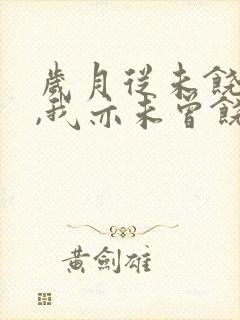 歲月從未饒
,我亦未曾饒
黃劍雄